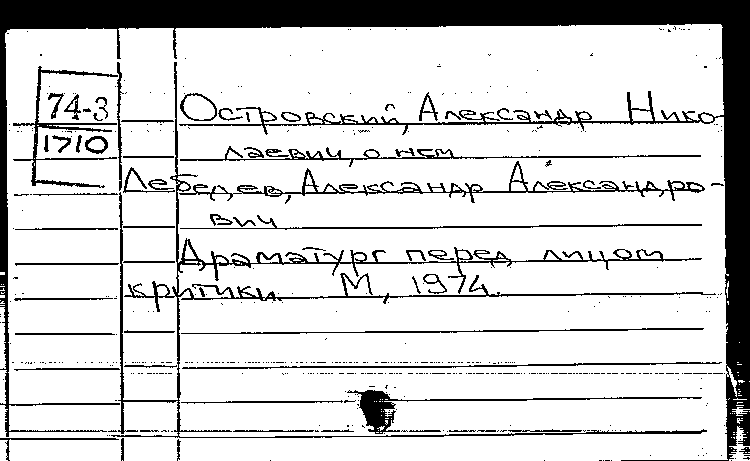 74-3
1710
Островский, Александр Нико-
лаевич, о нем
Лебедев, Александр Александро-
вич
Драматург перед лицом
критики. М, 1974.